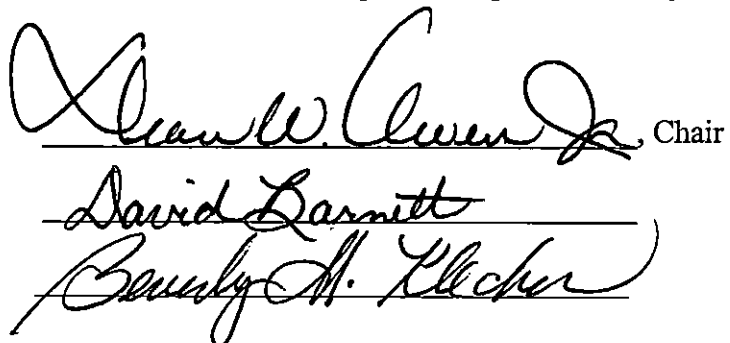 Dean W. Owen Jr., Chair
David Barnett
Beverly M. Klecker